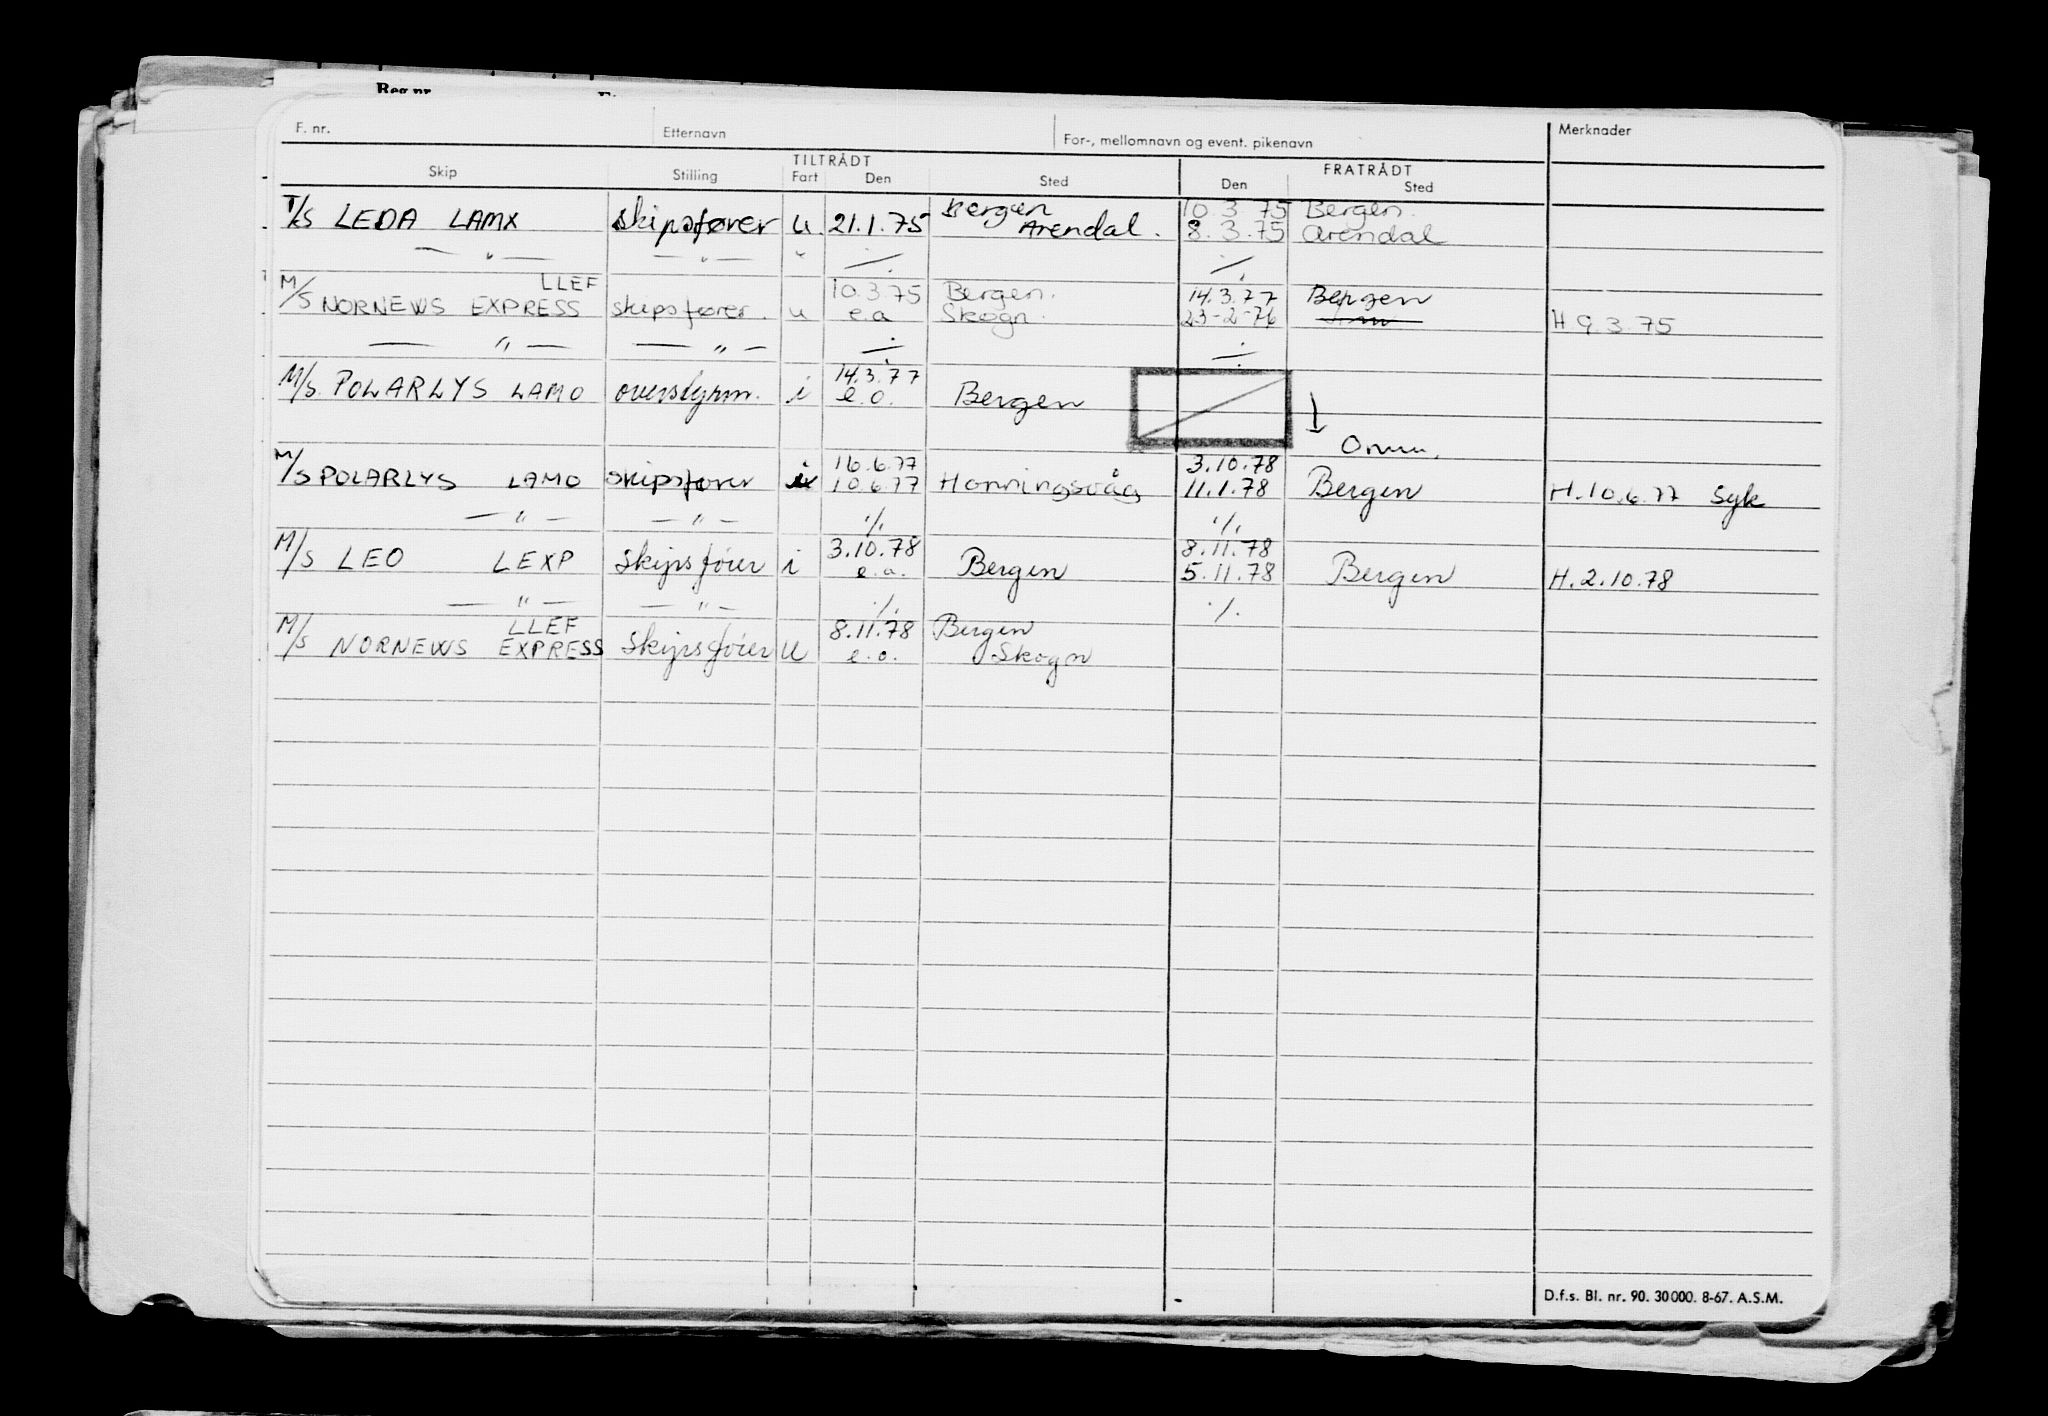 Reg.nr.
F. nr. Etternavn For-, mellomnavn og event. pikenavn Merknader
TILTRÅDT FRATRÅDT
Skip Stilling Fart Den Sted Den Sted
Bergen 10.3.75 Bergen.
T/S LEDA LAMX skipsfører u 21.1.75 Arendal. 8.3.75 Arendal
— " — — " — " ./. ./.
LLEF 10.3.75 Bergen. 14.3.77 Bergen
M/S NORNEWS EXPRESS skipsfører. u e.a Skogn. 23-2-76 H 9.3.75
— " — — " — ./. ./.
14.3.77
M/S POLARLYS LAMO overstyrm. i e.o. Bergen
16.6.77 3.10.78
M/S POLARLYS LAMO skipsfører i 10.6.77 Honningsvåg 11.1.78 Bergen H.10.6.77 Syk
— " — — " — ./. ./.
3.10.78 8.11.78
M/S LEO LEXP Skipsfører i e.a. Bergen 5.11.78 Bergen H.2.10.78
— " — — " — ./. ./.
LLEF 8.11.78 Bergen
M/S NORNEWS EXPRESS Skipsfører u e.o. Skogn
D.f.s. Bl. nr. 90. 30000. 8-67. A.S.M.